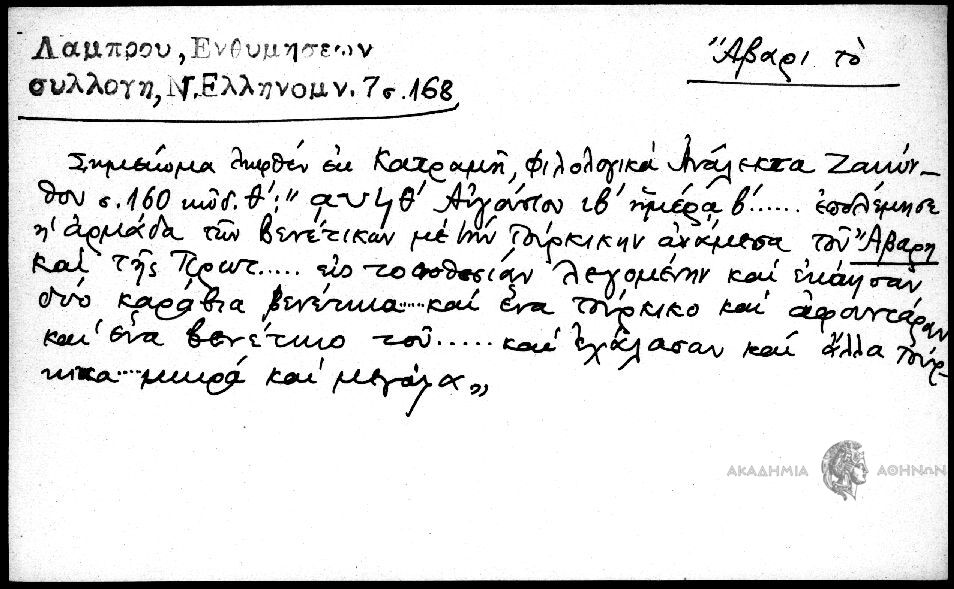 Λαμπρου, Ενθυμησεων
συλλογη, Ν. Ελληνομν. 7 σ. 168
Ἄβαρι τὸ
Σημείωμα ληφθέν ἐκ Κατραμῆ, Φιλολογικά Ἀνάλεκτα Ζακύν-
θου σ. 160 κώδ. θ': "αυϟθ' Αὐγούστου ιβ' ἡμέρᾳ β'...... ἐπολέμησε
ἡ ἀρμάδα τῶν Βενέτικων μὲ τὴν Τούρκικην ἀνάμεσα τοῦ Ἄβαρη
καὶ τῆς Πρωτ..... εἰς τοποθεσίαν λεγομένην καὶ ἐκάησαν
δύο καράβια βενέτικα.... καὶ ἕνα τούρκικο καὶ ἀφαντάραν
καὶ ἕνα βενέτικο τοῦ..... καὶ ἐχάλασαν καὶ ἄλλα τούρ-
κικα.... μικρά καὶ μεγάλα"
ΑΚΑΔΗΜΙΑ ΑΘΗΝΩΝ